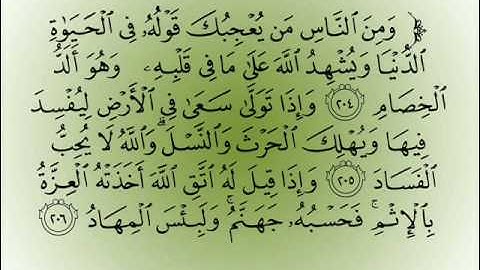 وَمِنَ النَّاسِ مَن يُعْجِبُكَ قَوْلُهُۥ فِى الْحَيَوٰةِ
الدُّنْيَا وَيُشْهِدُ اللَّهَ عَلَىٰ مَا فِى قَلْبِهِۦ وَهُوَ أَلَدُّ
الْخِصَامِ ٢٠٤ وَإِذَا تَوَلَّىٰ سَعَىٰ فِى الْأَرْضِ لِيُفْسِدَ
فِيهَا وَيُهْلِكَ الْحَرْثَ وَالنَّسْلَ ۗ وَاللَّهُ لَا يُحِبُّ
الْفَسَادَ ٢٠٥ وَإِذَا قِيلَ لَهُ اتَّقِ اللَّهَ أَخَذَتْهُ الْعِزَّةُ
بِالْإِثْمِ ۚ فَحَسْبُهُۥ جَهَنَّمُ ۚ وَلَبِئْسَ الْمِهَادُ ٢٠٦